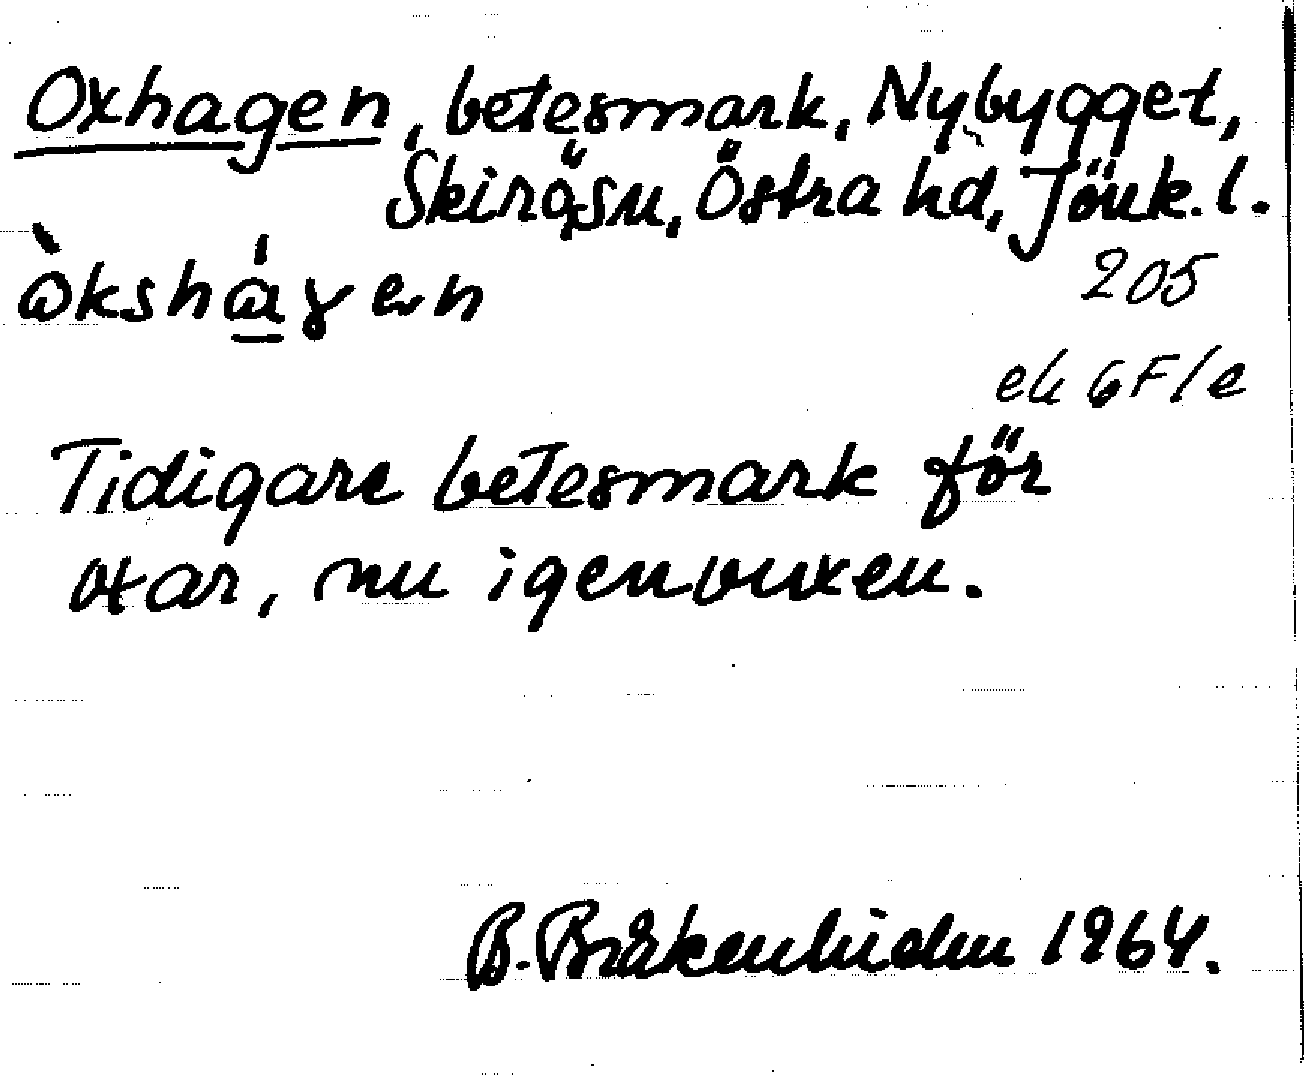 Oxhagen, betesmark, Nybygget,
Skirö sn, Östra hd, Jönk. l.
205
ò̀kshá̱γen
ek 6F/e
Tidigare betesmark för
oxar, nu igenvuxen.
B. 1964.